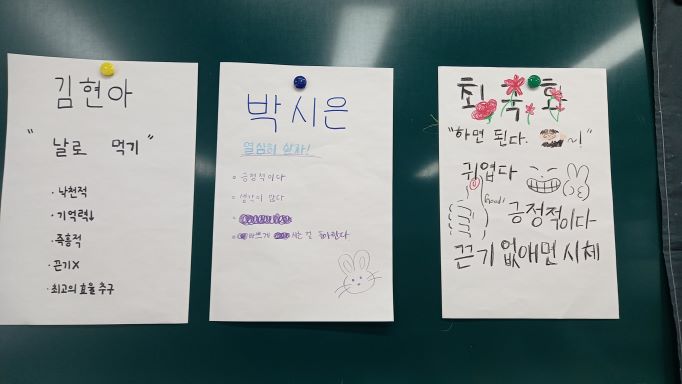 김현아
"날로 먹기"
· 낙천적
· 기억력↓
· 즉흥적
· 끈기X
· 최고의 효율 추구
박시은
열심히 살자!
긍정적이다
생각이 많다
바쁘게 사는 걸 좋아한다
최국화
"하면 된다. ~!"
귀엽다
Good!
긍정적이다
끈기 없애면 시체